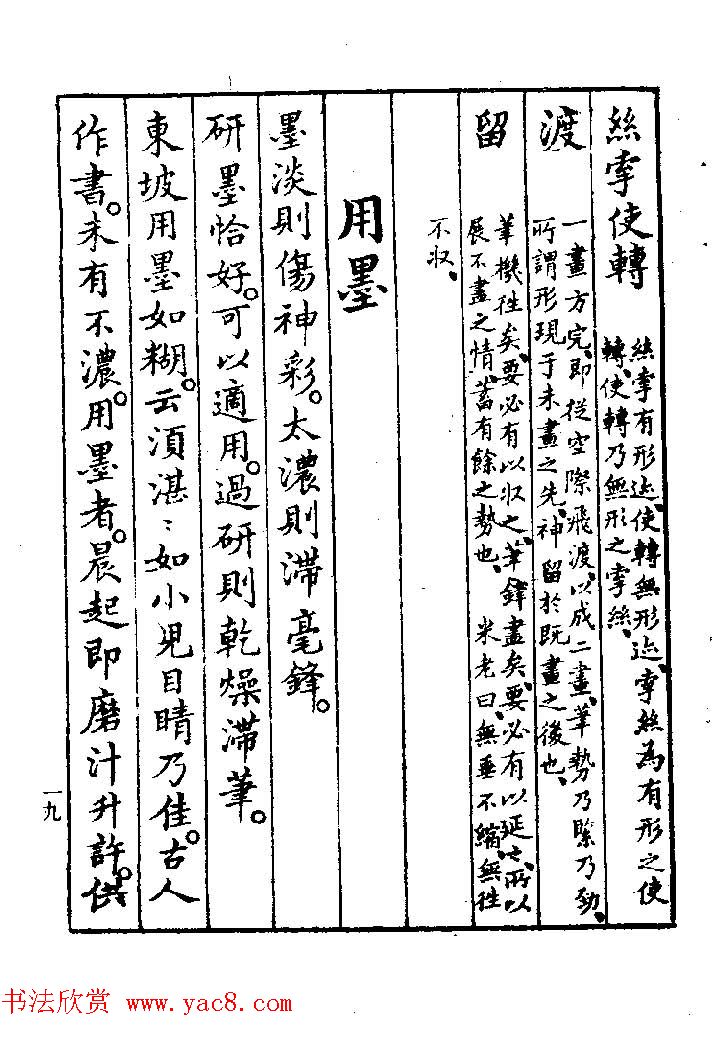 絲牽使轉
絲牽有形迹、使轉無形迹、牽絲為有形之使
轉、使轉乃無形之牽絲、
渡
一畫方完、即從空際飛渡、以成二畫、筆勢乃緊乃勁、
所謂形現于未畫之先、神留於既畫之後也、
留
筆機往矣、要必有以収之、筆鋒盡矣、要必有以延之、所以
展不盡之情、蓄有餘之勢也、 米老曰、無垂不縮、無往
不収、
用墨
墨淡則傷神彩。太濃則滯毫鋒。
研墨恰好。可以適用。過研則乾燥滯筆。
東坡用墨如糊。云須湛〻如小兒目睛乃佳。古人
作書。未有不濃。用墨者。晨起即磨汁升許。供
一九
书法欣赏 www.yac8.com